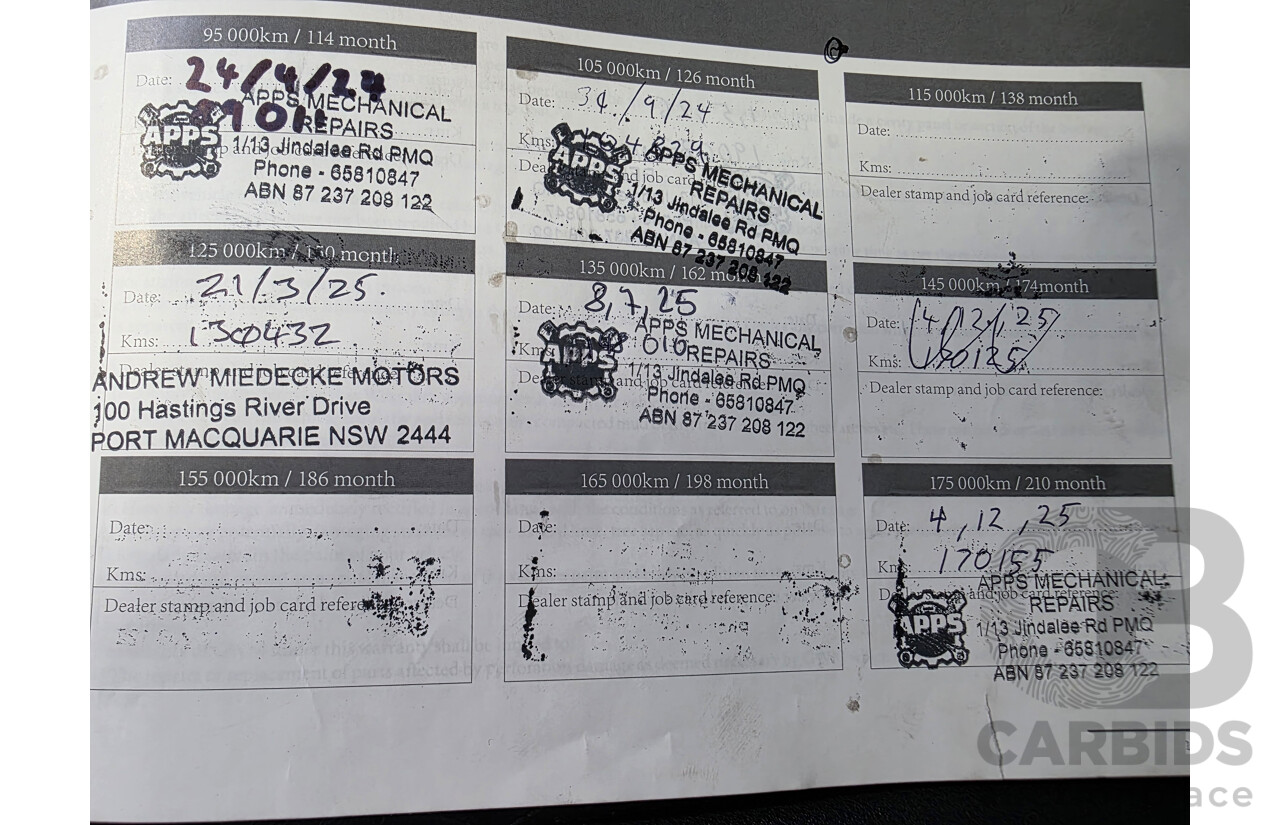 95 000km / 114 month
Date: 24/4/24
APPS MECHANICAL
REPAIRS
APPS
1/13 Jindalee Rd PMQ
Phone - 65810847
ABN 87 237 208 122
105 000km / 126 month
Date: /9/24
Kms:
APPS MECHANICAL
REPAIRS
APPS
1/13 Jindalee Rd PMQ
Phone - 65810847
ABN 87 237 208 122
115 000km / 138 month
Date:
Kms:
Dealer stamp and job card reference:
125 000km / 150 month
Date: 21/3/25.
Kms: 130432
Dealer stamp and job card reference:
ANDREW MIEDECKE MOTORS
100 Hastings River Drive
PORT MACQUARIE NSW 2444
135 000km / 162 month
Date: 8,7,25
APPS MECHANICAL
REPAIRS
APPS
Dealer stamp and job card reference:
1/13 Jindalee Rd PMQ
Phone - 65810847
ABN 87 237 208 122
145 000km / 174month
Date: 4/12/25
Kms:
Dealer stamp and job card reference:
155 000km / 186 month
Date:
Kms:
Dealer stamp and job card reference:
165 000km / 198 month
Date:
Kms:
Dealer stamp and job card reference:
175 000km / 210 month
Date: 4,12,25
Kms: 170155
APPS MECHANICAL
REPAIRS
APPS
1/13 Jindalee Rd PMQ
Phone - 65810847
ABN 87 237 208 122
CARBIDS